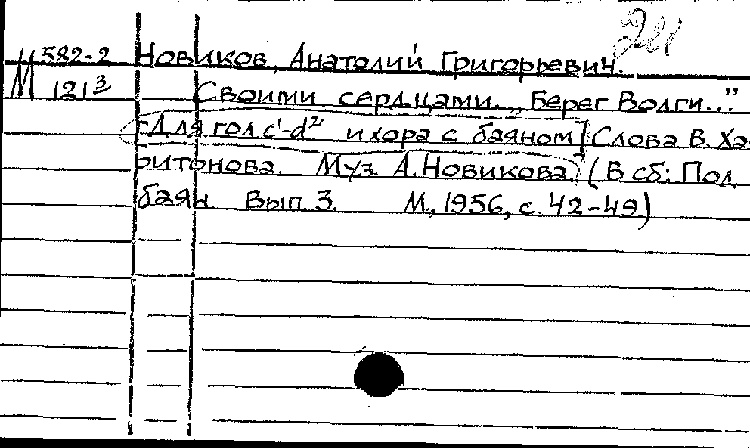 М 582-2 Новиков, Анатолий Григорьевич.
М 121³ Своими сердцами... „Берег Волги..."
[Для гол. c¹-d² и хора с баяном] Слова В. Ха-
ритонова. Муз. А. Новикова. (В сб: Под
баян. Вып. 3. М., 1956, с. 42-49)